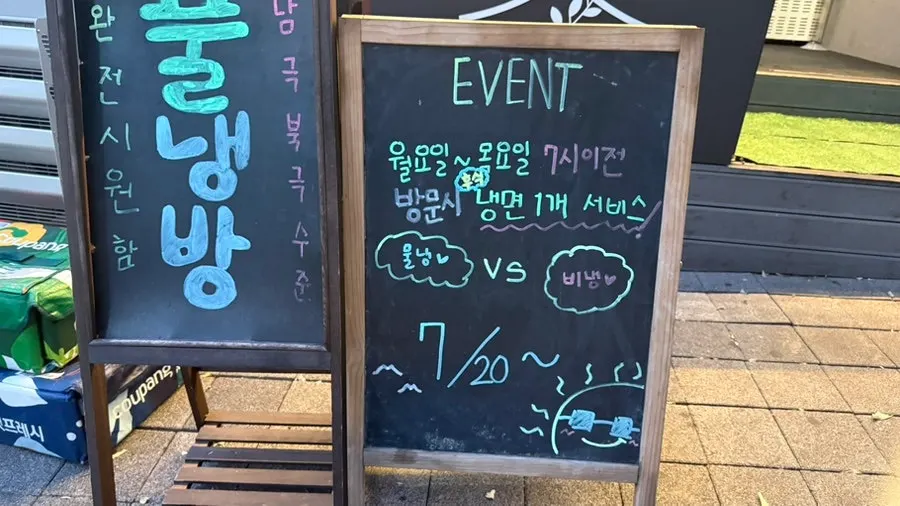 완전시원함
물냉방
남극북극수준
EVENT
월요일~목요일 7시이전
방문시 후식 냉면 1개 서비스!
물냉♥ vs 비냉♥
7/20~
coupang
coupang
프레시